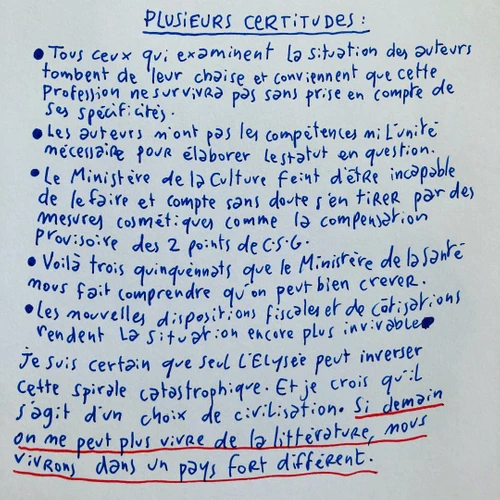 PLUSIEURS CERTITUDES :
• Tous ceux qui examinent la situation des auteurs
tombent de leur chaise et conviennent que cette
profession ne survivra pas sans prise en compte de
ses spécificités.
• Les auteurs n'ont pas les compétences ni l'unité
nécessaire pour élaborer le statut en question.
• Le Ministère de la Culture feint d'être incapable
de le faire et compte sans doute s'en tirer par des
mesures cosmétiques comme la compensation
provisoire des 2 points de C.S.G.
• Voilà trois quinquennats que le Ministère de la Santé
nous fait comprendre qu'on peut bien crever.
• Les nouvelles dispositions fiscales et de cotisations
rendent la situation encore plus invivable
Je suis certain que seul l'Elysée peut inverser
cette spirale catastrophique. Et je crois qu'il
s'agit d'un choix de civilisation. Si demain
on ne peut plus vivre de la littérature, nous
vivrons dans un pays fort différent.